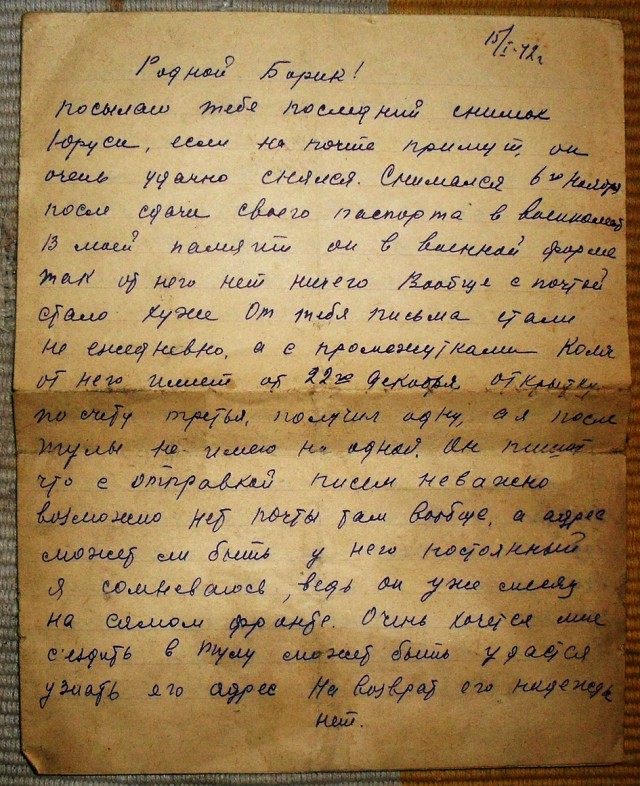 15/I-42г
Родной Борик!
посылаю тебе последний снимок
Юруси, если на почте примут, он
очень удачно снялся. Снимался 6го ноября
после сдачи своего паспорта в военкомат
В моей памяти он в военной форме
так от него нет ничего Вообще с почтой
стало хуже От тебя письма стали
не ежедневно, а с промежутками Коля
от него имеет от 22го декабря открытку
по счету третья, получил одну, а я после
Тулы не имею ни одной. Он пишет
что с отправкой писем неважно
возможно нет почты там вообще, а адрес
может ли быть у него постоянный
я сомневаюсь, ведь он уже месяц
на самом фронте. Очень хочется мне
с'ездить в Тулу может быть удастся
узнать его адрес На возврат его надежды
нет.